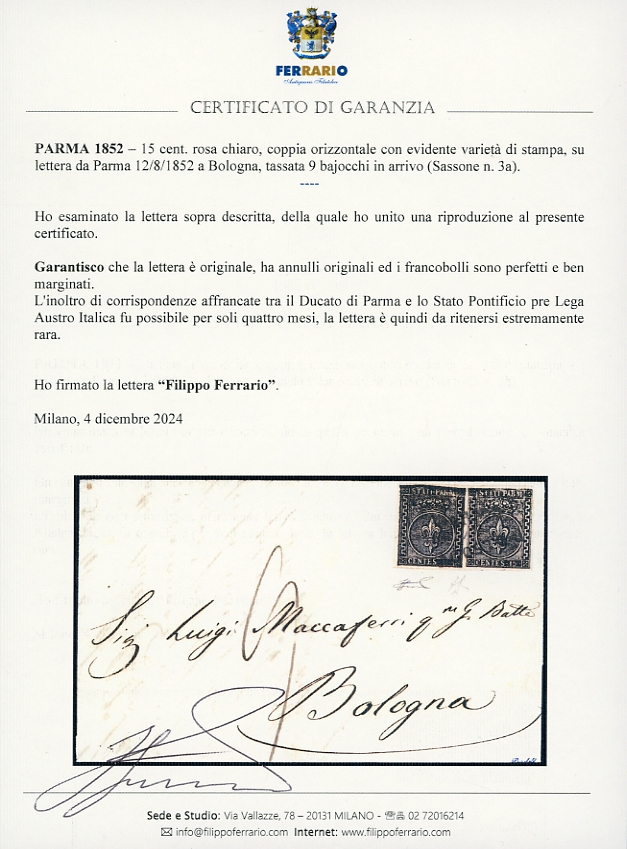 FERRARIO
Antiquariato Filatelico
CERTIFICATO DI GARANZIA
PARMA 1852 – 15 cent. rosa chiaro, coppia orizzontale con evidente varietà di stampa, su
lettera da Parma 12/8/1852 a Bologna, tassata 9 bajocchi in arrivo (Sassone n. 3a).
----
Ho esaminato la lettera sopra descritta, della quale ho unito una riproduzione al presente
certificato.
Garantisco che la lettera è originale, ha annulli originali ed i francobolli sono perfetti e ben
marginati.
L'inoltro di corrispondenze affrancate tra il Ducato di Parma e lo Stato Pontificio pre Lega
Austro Italica fu possibile per soli quattro mesi, la lettera è quindi da ritenersi estremamente
rara.
Ho firmato la lettera “Filippo Ferrario”.
Milano, 4 dicembre 2024
STATI PARM
STATI PARM
CENTES 15
CENTES 15
Sig Luigi Maccaferri q.m G. Batta
Bologna
Sede e Studio: Via Vallazze, 78 – 20131 MILANO - 02 72016214
info@filippoferrario.com Internet: www.filippoferrario.com